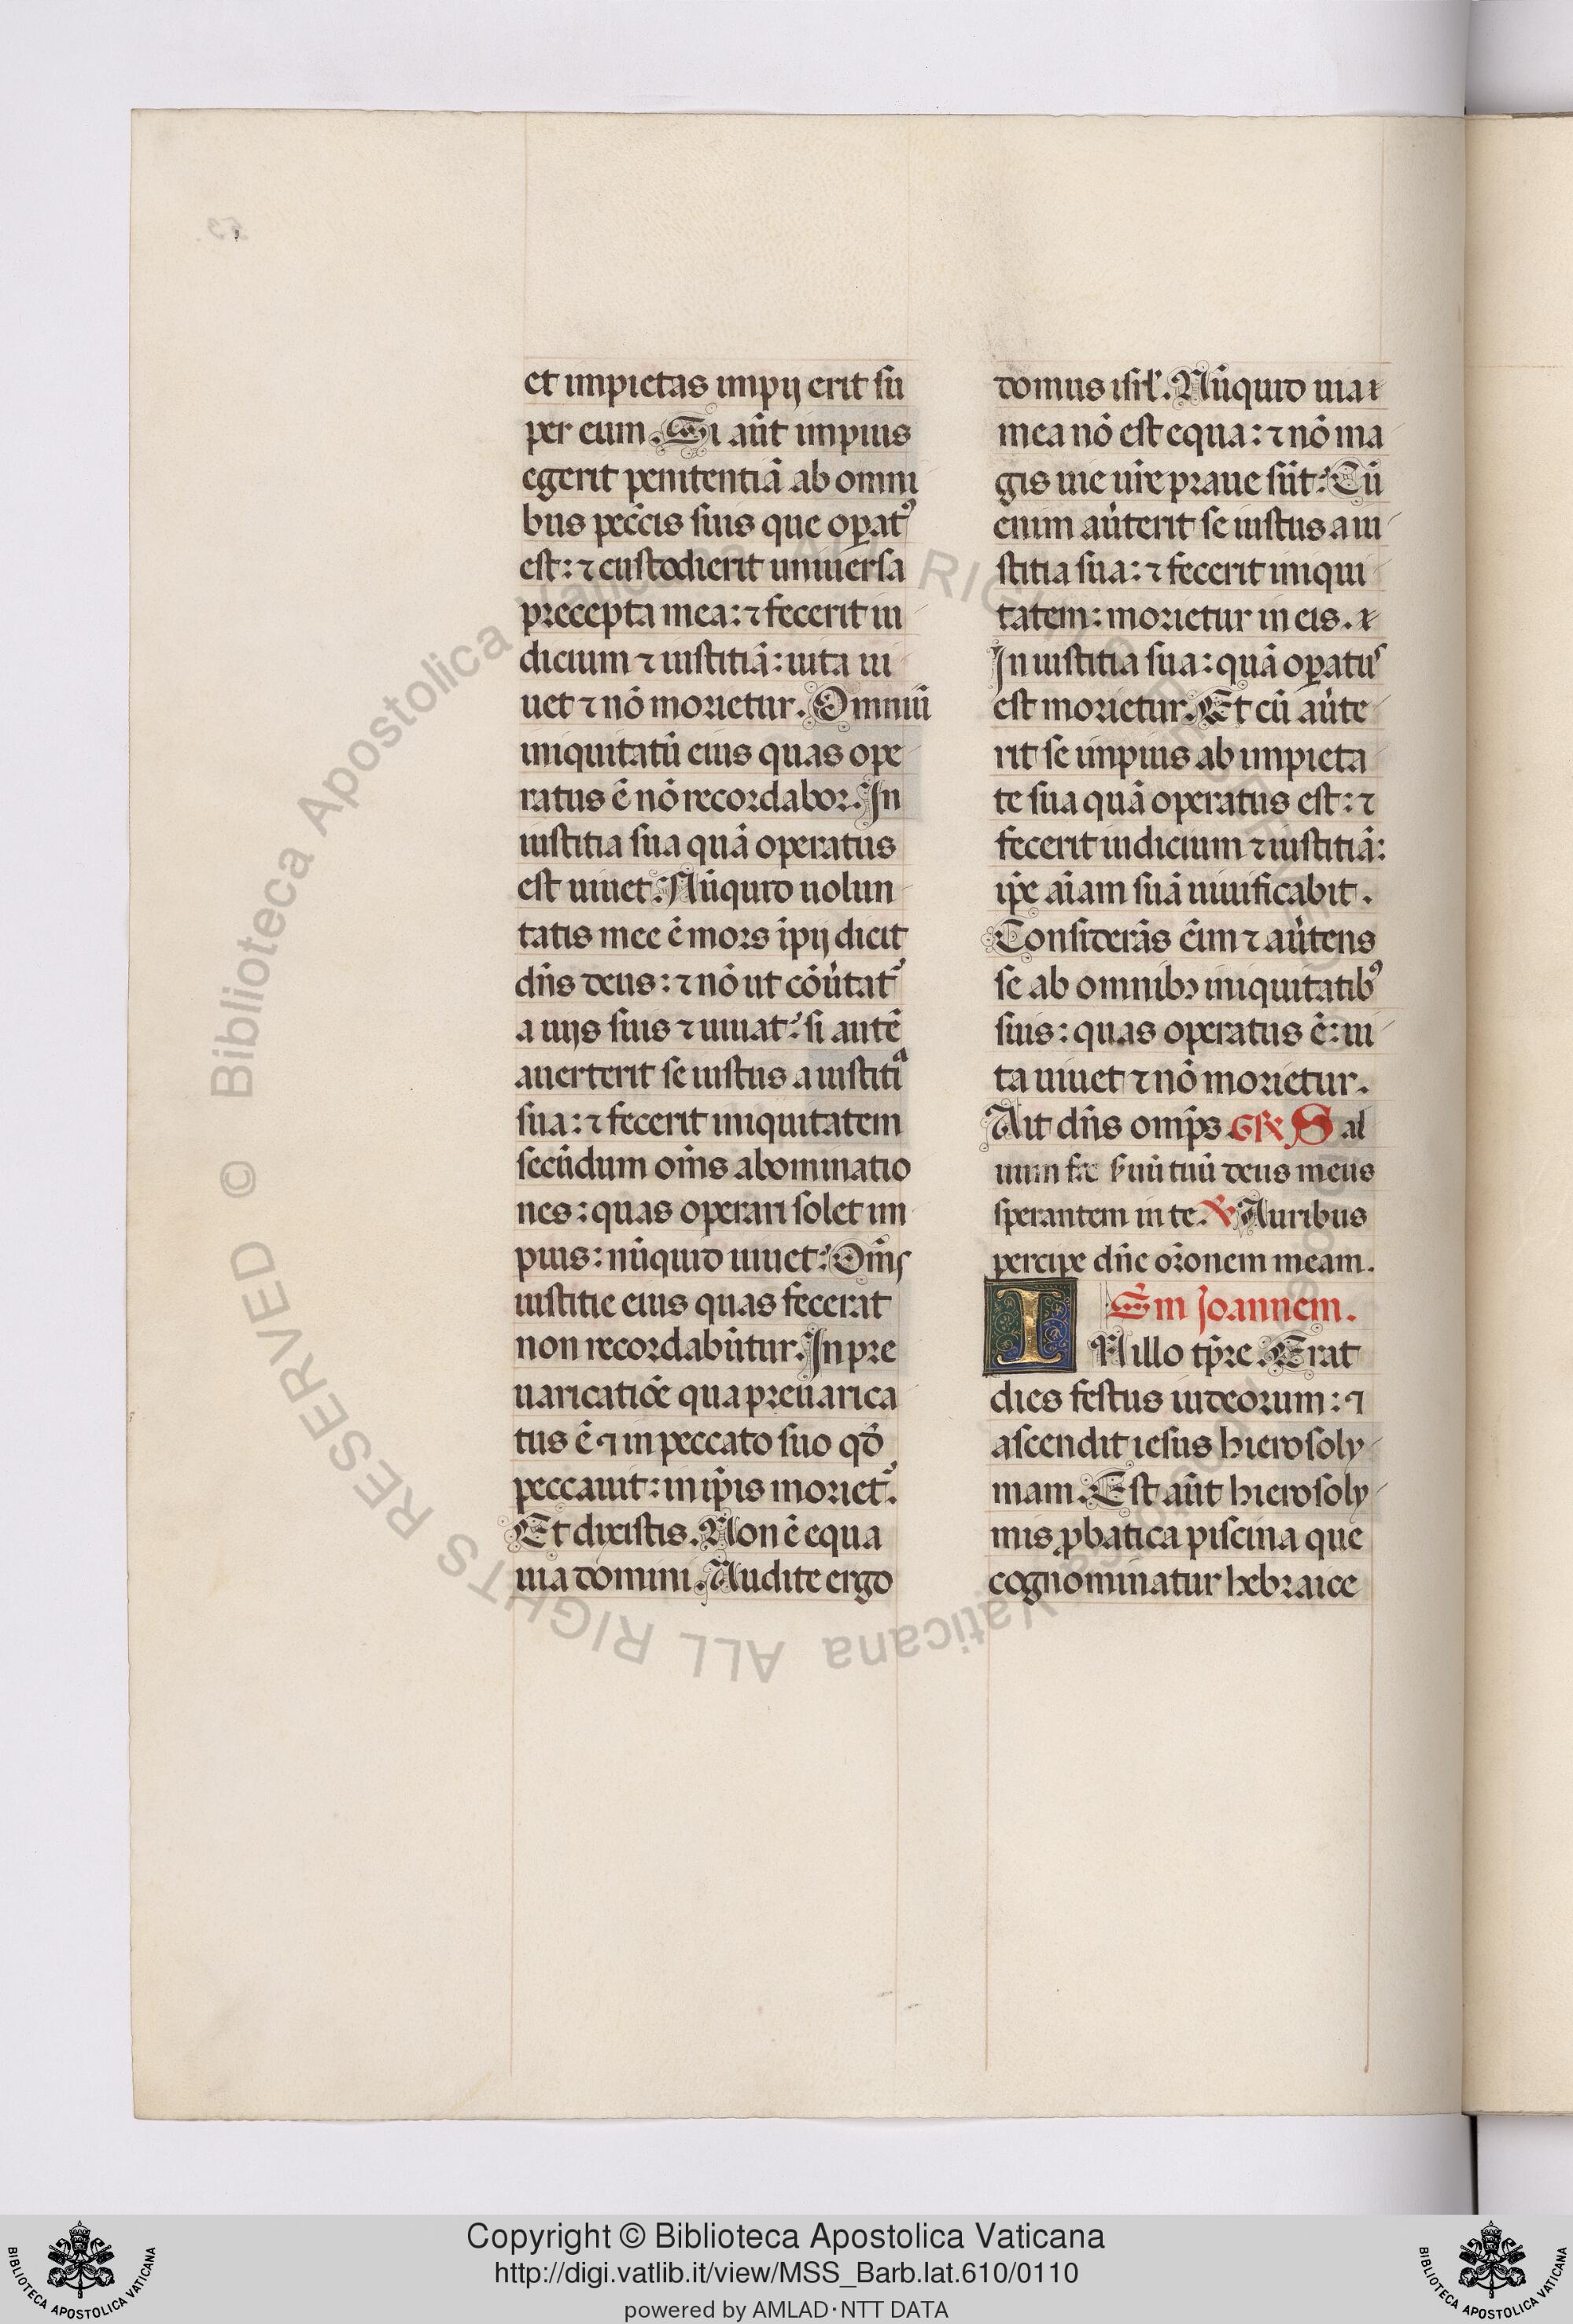 et impietas impij erit su
per eum. Si aūt impius
egerit penitentiā ab omni
bus pecc̄is suis que oꝑatꝰ
est: ⁊ custodierit uniuersa
precepta mea: ⁊ fecerit iu
dicium ⁊ iustitiā: uita ui
uet ⁊ nō morietur. Omniū
iniquitatū eius quas ope
ratus ē nō recordabor. In
iustitia sua quā operatus
est uiuet. Nūquid uolun
tatis mee ē mors īpij dicit
dn̄s deus: ⁊ nō ut cōu̓tat᷑
a uijs suis ⁊ uiuat? si autē
auerterit se iustus a iustitiᵃ
sua: ⁊ fecerit iniquitatem
secūdum om̄s abominatio
nes: quas operari solet im
pius: nūquid uiuet? Om̄s
iustitie eius quas fecerat
non recordabūtur. In pre
uaricatiōe qua preuarica
tus ē ⁊ in peccato suo qđ
peccauit: in ip̄is moriet᷑.
Et dixistis. Non ē equa
uia domini. Audite ergo
domus isrl̓. Nūquid uia
mea nō est equa: ⁊ nō ma
gis uie ur̄e praue sūt? Cū
enim au̓terit se iustus a iu
stitia sua: ⁊ fecerit iniqui
tatem: morietur in eis.
In iustitia sua: quā oꝑatus
est morietur. Et cū au̓te
rit se impius ab impieta
te sua quā operatus est: ⁊
fecerit iudicium ⁊ iustitiā:
ip̄e aīam suā uiuificabit.
Considerās eīm ⁊ au̓tens
se ab omnibꝫ iniquitatibꝰ
suis: quas operatus ē: ui
ta uiuet ⁊ nō morietur.
Ait dn̄s omp̄s. Gr̄ Sal
uum fac ẜuū tuū deus meus
sperantem in te. ℣ Auribus
percipe dn̄e or̄onem meam.
Sm̄ Joannem.
IN illo tp̄re. Erat
dies festus iudeorum: ⁊
ascendit iesus hierosoly
mam. Est aūt hierosoly
mis ꝓbatica piscina que
cognominatur hebraice
© Biblioteca Apostolica Vaticana ALL RIGHTS RESERVED
Copyright © Biblioteca Apostolica Vaticana
http://digi.vatlib.it/view/MSS_Barb.lat.610/0110
powered by AMLAD·NTT DATA
BIBLIOTECA APOSTOLICA VATICANA
BIBLIOTECA APOSTOLICA VATICANA